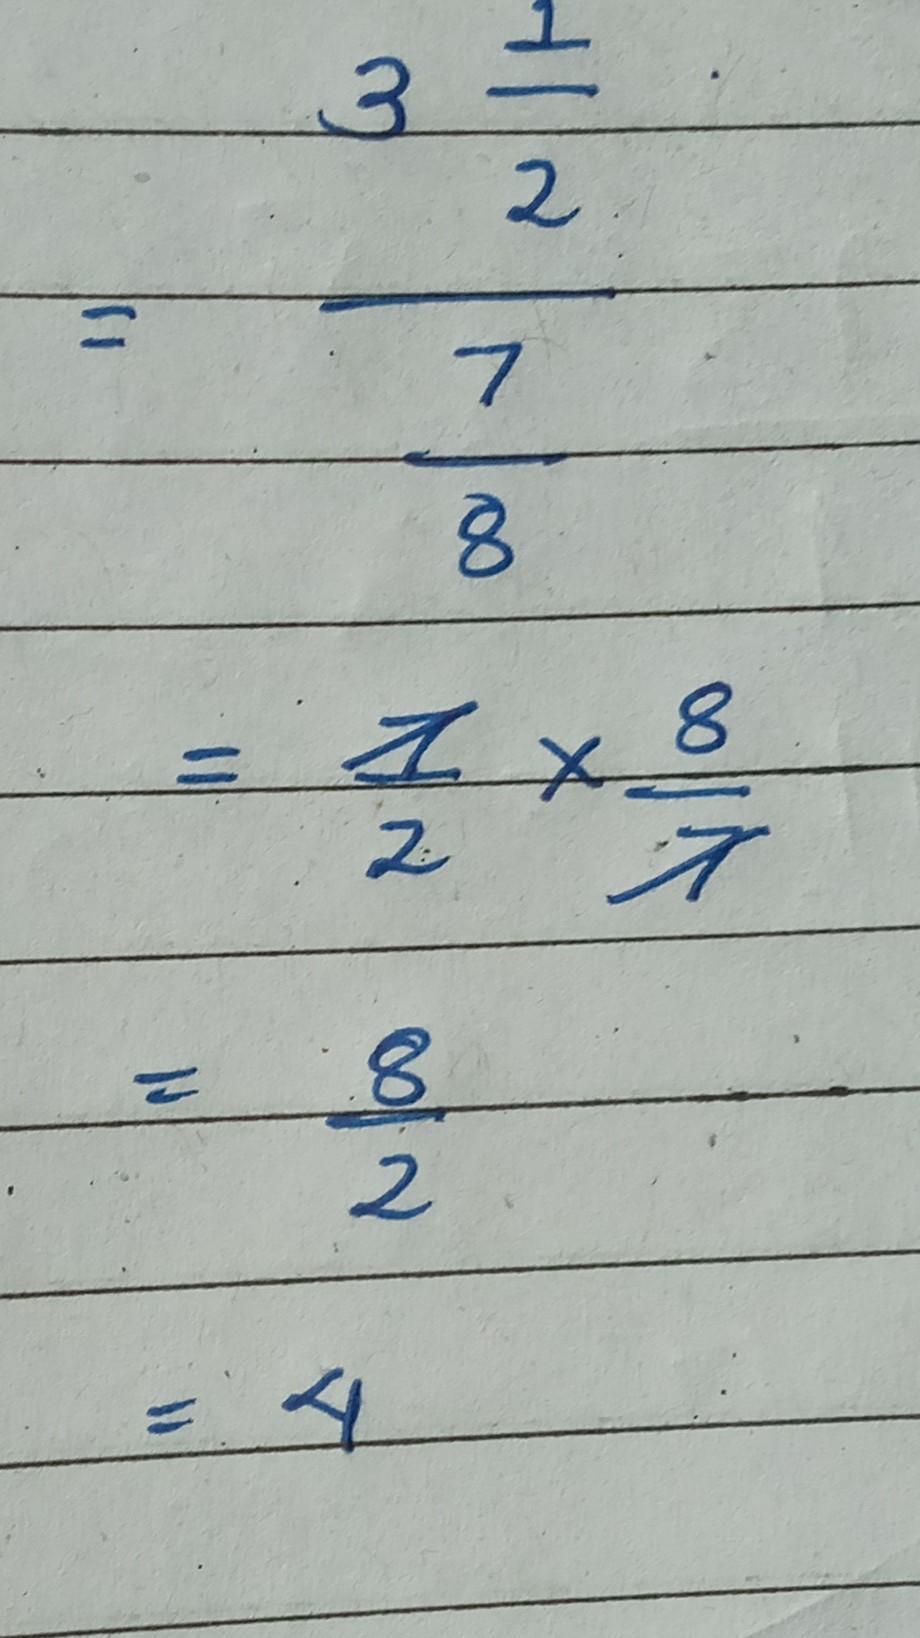 3 1/2
= ―
7/8
= 7/2 × 8/7
= 8/2
= 4